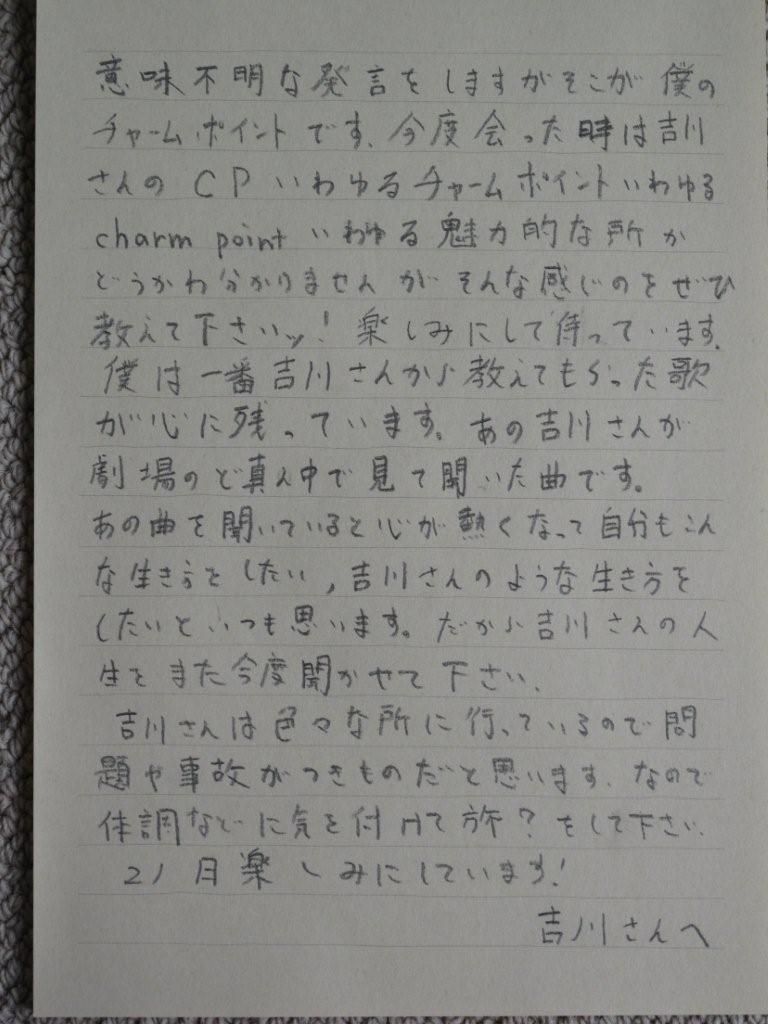 意味不明な発言をしますがそこが僕の
チャームポイントです。今度会った時は吉川
さんのCPいわゆるチャームポイントいわゆる
charm pointいわゆる魅力的な所か
どうかわ分かりませんがそんな感じのをぜひ
教えて下さいッ!楽しみにして待っています。
僕は一番吉川さんから教えてもらった歌
が心に残っています。あの吉川さんが
劇場のど真ん中で見て聞いた曲です。
あの曲を聞いていると心が熱くなって自分もこん
な生き方をしたい,吉川さんのような生き方を
したいといつも思います。だから吉川さんの人
生をまた今度聞かせて下さい。
吉川さんは色々な所に行っているので問
題や事故がつきものだと思います。なので
体調などに気を付けて旅?をして下さい。
21日楽しみにしています!
吉川さんへ